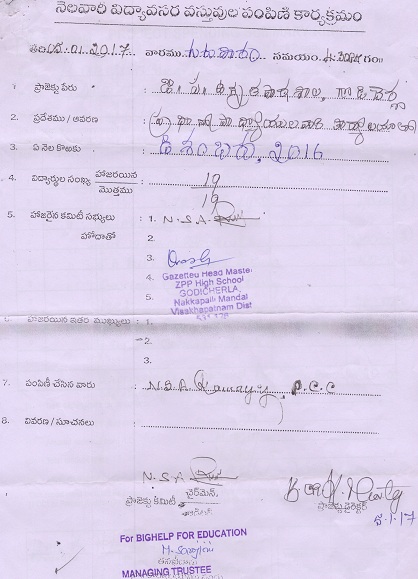 నెలవారి విద్యావసర వస్తువుల పంపిణి కార్యక్రమం
తేది 05.01.2017 వారము సమయం 4.30PM గం
1 ప్రాజెక్టు పేరు : జి. ప. ఉన్నత పాఠశాల, గొడిచెర్ల
2. ప్రదేశము / ఆవరణ : ప్రధానోపాధ్యాయులవారి కార్యాలయం
3. ఏ నెల కొఱకు : డిశంబరు, 2016
4. విద్యార్థుల సంఖ్య హాజరయిన / మొత్తము : 19 / 19
5. హాజరైన కమిటీ సభ్యులు : 1. N.S.A.
హోదాతో 2.
3.
4. Gazetted Head Master
ZPP High School
5. GODICHERLA,
Nakkapalli Mandal
Visakhapatnam Dist
6. హాజరయిన ఇతర ముఖ్యులు : 1.
2.
3.
7. పంపిణీ చేసిన వారు : N.S.A P.C.C
8. వివరణ / సూచనలు :
N.S.A
ప్రాజెక్టు కమిటీ ఛైర్‌మెన్,
ప్రాజెక్టు డైరెక్టర్
5.1.17
For BIGHELP FOR EDUCATION
MANAGING TRUSTEE